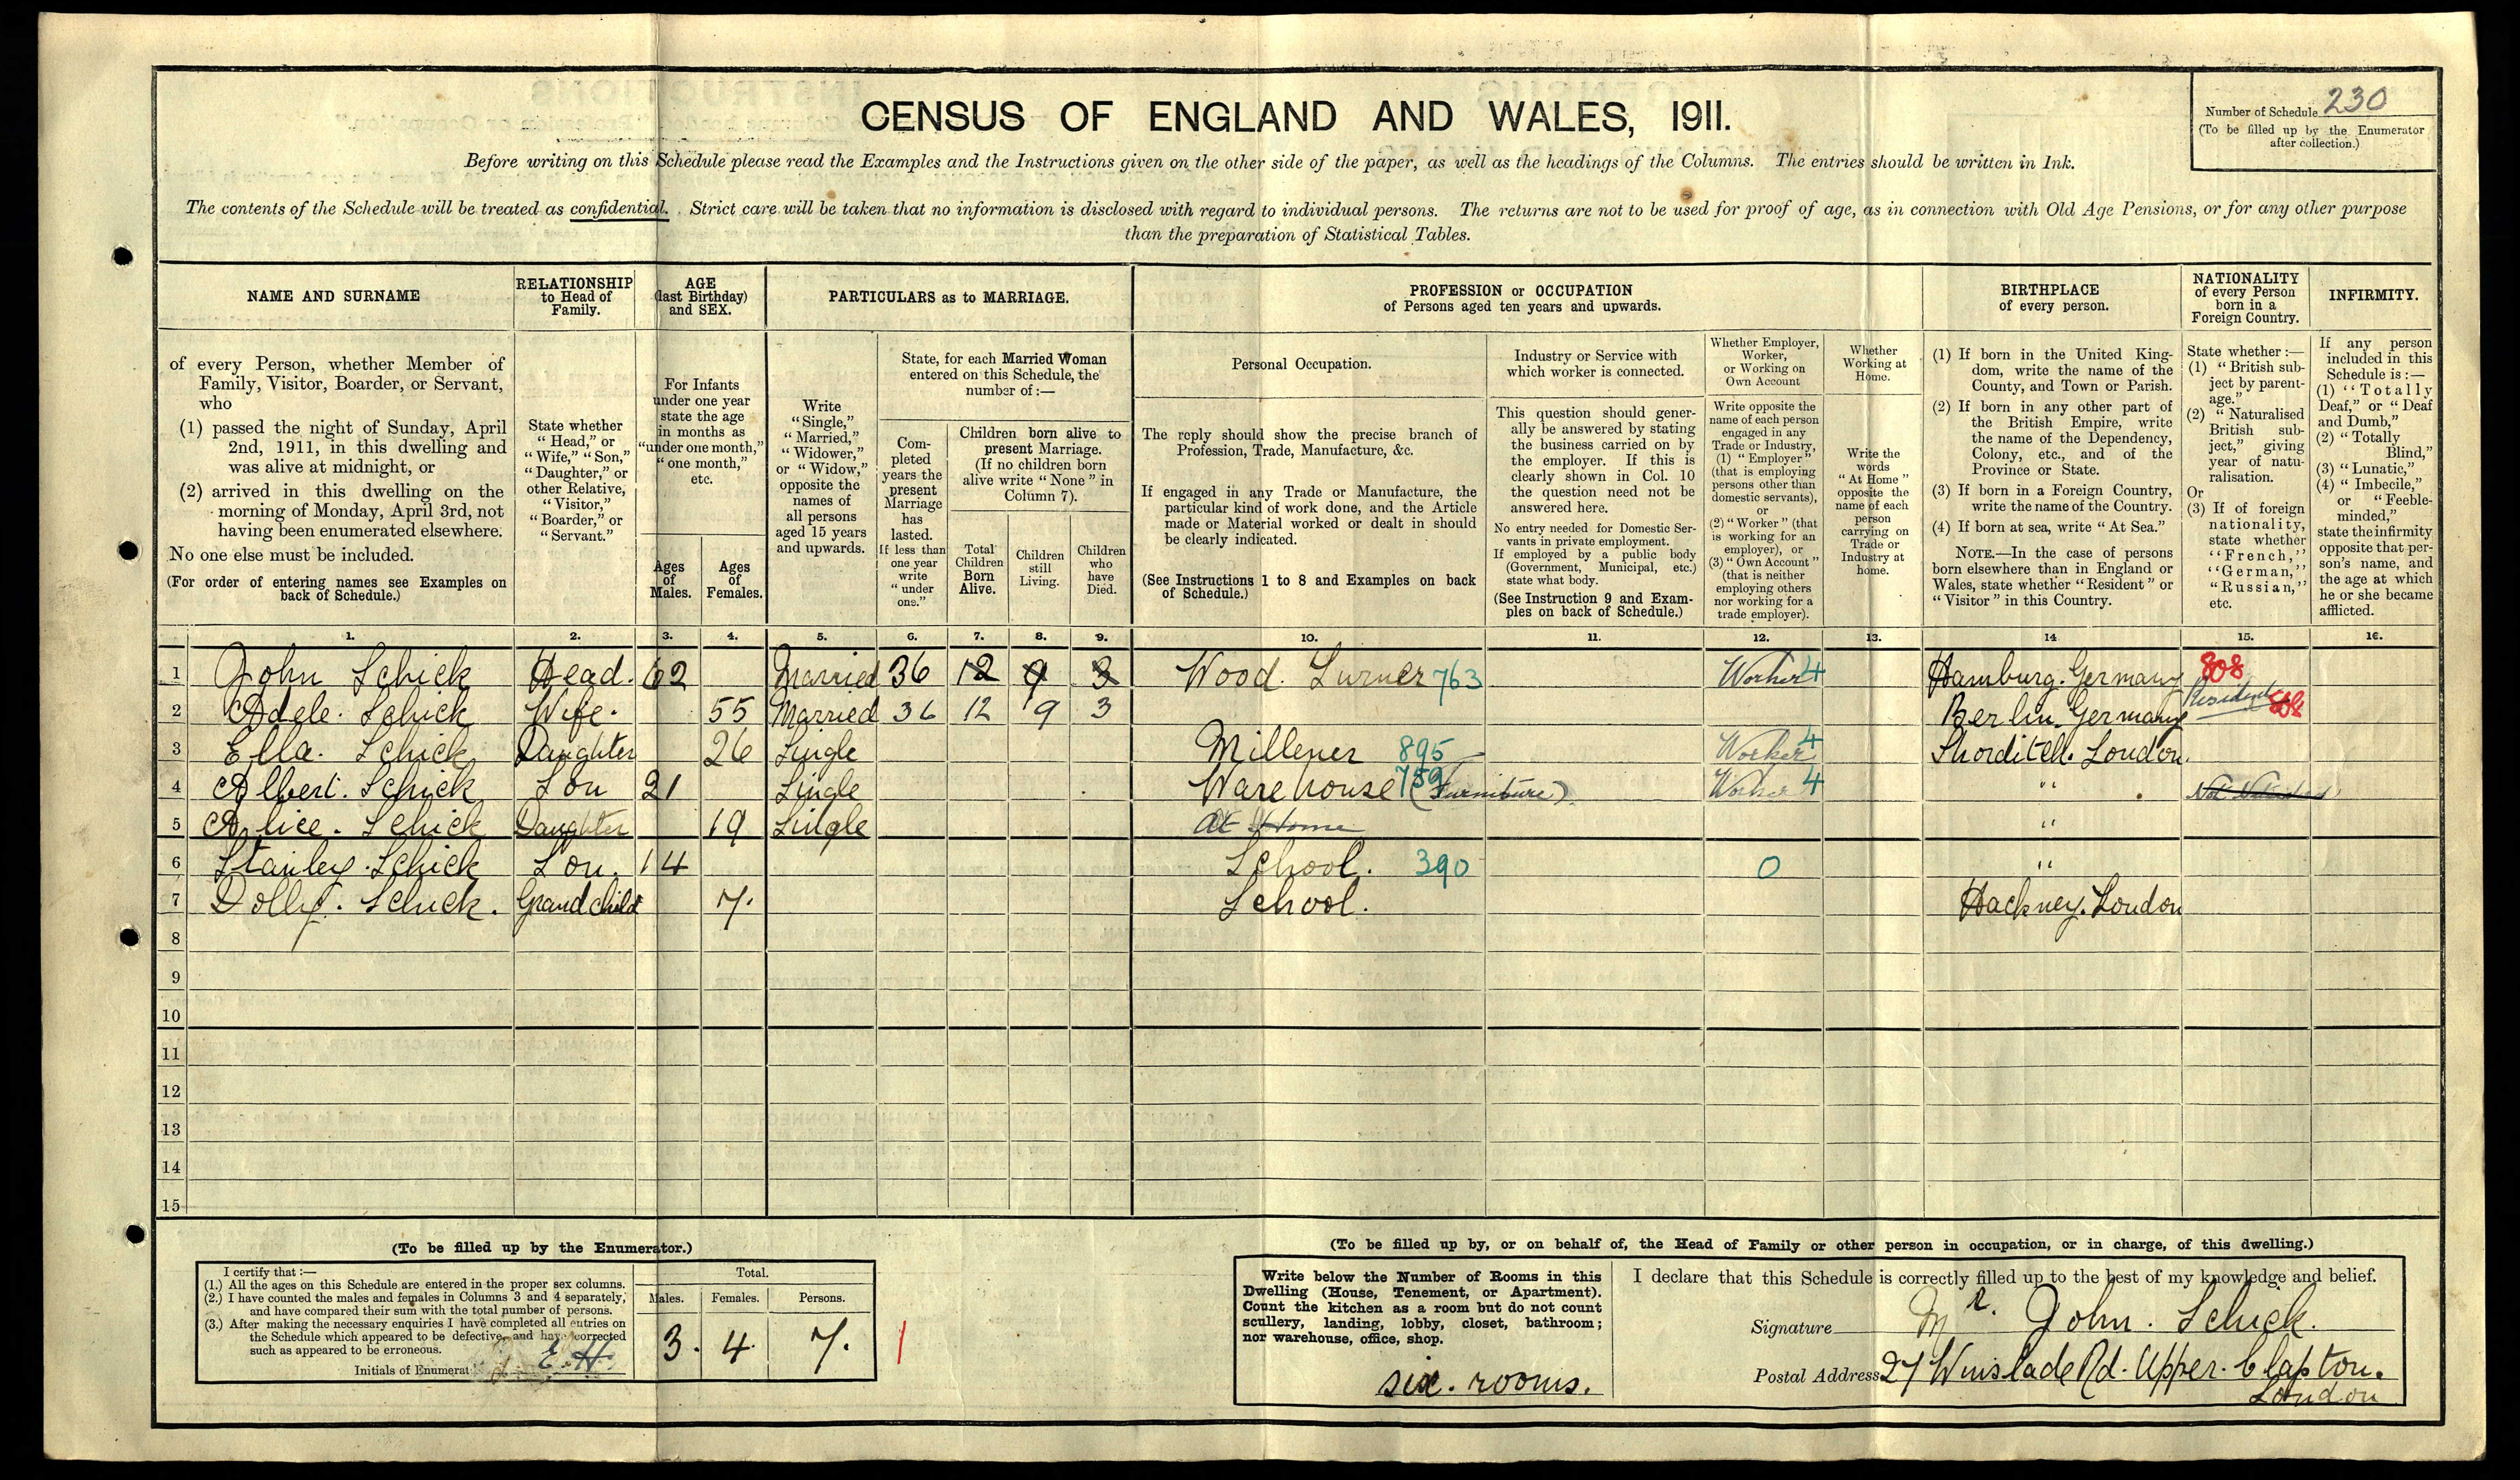 CENSUS OF ENGLAND AND WALES, 1911.
Number of Schedule 230
(To be filled up by the Enumerator
after collection.)
Before writing on this Schedule please read the Examples and the Instructions given on the other side of the paper, as well as the headings of the Columns. The entries should be written in Ink.
The contents of the Schedule will be treated as confidential. Strict care will be taken that no information is disclosed with regard to individual persons. The returns are not to be used for proof of age, as in connection with Old Age Pensions, or for any other purpose
than the preparation of Statistical Tables.
NAME AND SURNAME
of every Person, whether Member of
Family, Visitor, Boarder, or Servant,
who
(1) passed the night of Sunday, April
2nd, 1911, in this dwelling and
was alive at midnight, or
(2) arrived in this dwelling on the
morning of Monday, April 3rd, not
having been enumerated elsewhere.
No one else must be included.
(For order of entering names see Examples on
back of Schedule.)
RELATIONSHIP
to Head of
Family.
State whether
"Head," or
"Wife," "Son,"
"Daughter," or
other Relative,
"Visitor,"
"Boarder," or
"Servant."
AGE
(last Birthday)
and SEX.
For Infants
under one year
state the age
in months as
"under one month,"
"one month,"
etc.
Ages
of
Males.
Ages
of
Females.
PARTICULARS as to MARRIAGE.
Write
"Single,"
"Married,"
"Widower,"
or "Widow,"
opposite the
names of
all persons
aged 15 years
and upwards.
State, for each Married Woman
entered on this Schedule, the
number of :—
Com-
pleted
years the
present
Marriage
has
lasted.
If less than
one year
write
"under
one."
Children born alive to
present Marriage.
(If no children born
alive write "None" in
Column 7).
Total
Children
Born
Alive.
Children
still
Living.
Children
who
have
Died.
PROFESSION or OCCUPATION
of Persons aged ten years and upwards.
Personal Occupation.
The reply should show the precise branch of
Profession, Trade, Manufacture, &c.
If engaged in any Trade or Manufacture, the
particular kind of work done, and the Article
made or Material worked or dealt in should
be clearly indicated.
(See Instructions 1 to 8 and Examples on back
of Schedule.)
Industry or Service with
which worker is connected.
This question should gener-
ally be answered by stating
the business carried on by
the employer. If this is
clearly shown in Col. 10
the question need not be
answered here.
No entry needed for Domestic Ser-
vants in private employment.
If employed by a public body
(Government, Municipal, etc.)
state what body.
(See Instruction 9 and Exam-
ples on back of Schedule.)
Whether Employer,
Worker,
or Working on
Own Account
Write opposite the
name of each person
engaged in any
Trade or Industry,
(1) "Employer"
(that is employing
persons other than
domestic servants),
or
(2) "Worker" (that
is working for an
employer), or
(3) "Own Account"
(that is neither
employing others
nor working for a
trade employer).
Whether
Working at
Home.
Write the
words
"At Home"
opposite the
name of each
person
carrying on
Trade or
Industry at
home.
BIRTHPLACE
of every person.
(1) If born in the United King-
dom, write the name of the
County, and Town or Parish.
(2) If born in any other part of
the British Empire, write
the name of the Dependency,
Colony, etc., and of the
Province or State.
(3) If born in a Foreign Country,
write the name of the Country.
(4) If born at sea, write "At Sea."
NOTE.—In the case of persons
born elsewhere than in England or
Wales, state whether "Resident" or
"Visitor" in this Country.
NATIONALITY
of every Person
born in a
Foreign Country.
State whether :—
(1) "British sub-
ject by parent-
age."
(2) "Naturalised
British sub-
ject," giving
year of natu-
ralisation.
Or
(3) If of foreign
nationality,
state whether
"French,"
"German,"
"Russian,"
etc.
INFIRMITY.
If any person
included in this
Schedule is :—
(1) "Totally
Deaf," or "Deaf
and Dumb,"
(2) "Totally
Blind,"
(3) "Lunatic,"
(4) "Imbecile,"
or "Feeble-
minded,"
state the infirmity
opposite that per-
son's name, and
the age at which
he or she became
afflicted.
1. 2. 3. 4. 5. 6. 7. 8. 9. 10. 11. 12. 13. 14 15. 16.
1 John Schick Head. 62 Married 36 12 9 3 Wood. Turner 763 Worker 4 Hamburg. Germany 808
2 Adele. Schick Wife. 55 Married 36 12 9 3 Berlin. Germany Resident 808
3 Ella. Schick Daughter 26 Single Millener 895 Worker 4 Shorditch. London.
4 Albert. Schick Son 21 Single Warehouse 759 (Furniture) Worker 4 "
5 Alice. Schick Daughter 19 Single At Home "
6 Stanley. Schick Son. 14 School. 390 0 "
7 Dolly. Schick. Grandchild 7. School. Hackney. London
8
9
10
11
12
13
14
15
(To be filled up by the Enumerator.)
I certify that :—
(1.) All the ages on this Schedule are entered in the proper sex columns.
(2.) I have counted the males and females in Columns 3 and 4 separately,
and have compared their sum with the total number of persons.
(3.) After making the necessary enquiries I have completed all entries on
the Schedule which appeared to be defective, and have corrected
such as appeared to be erroneous.
Initials of Enumerat E.H.
Total.
Males. Females. Persons.
3. 4. 7. 1
(To be filled up by, or on behalf of, the Head of Family or other person in occupation, or in charge, of this dwelling.)
Write below the Number of Rooms in this
Dwelling (House, Tenement, or Apartment).
Count the kitchen as a room but do not count
scullery, landing, lobby, closet, bathroom;
nor warehouse, office, shop.
six. rooms.
I declare that this Schedule is correctly filled up to the best of my knowledge and belief.
Signature Mr. John. Schick.
Postal Address 27 Winslade Rd. Upper. Clapton.
London